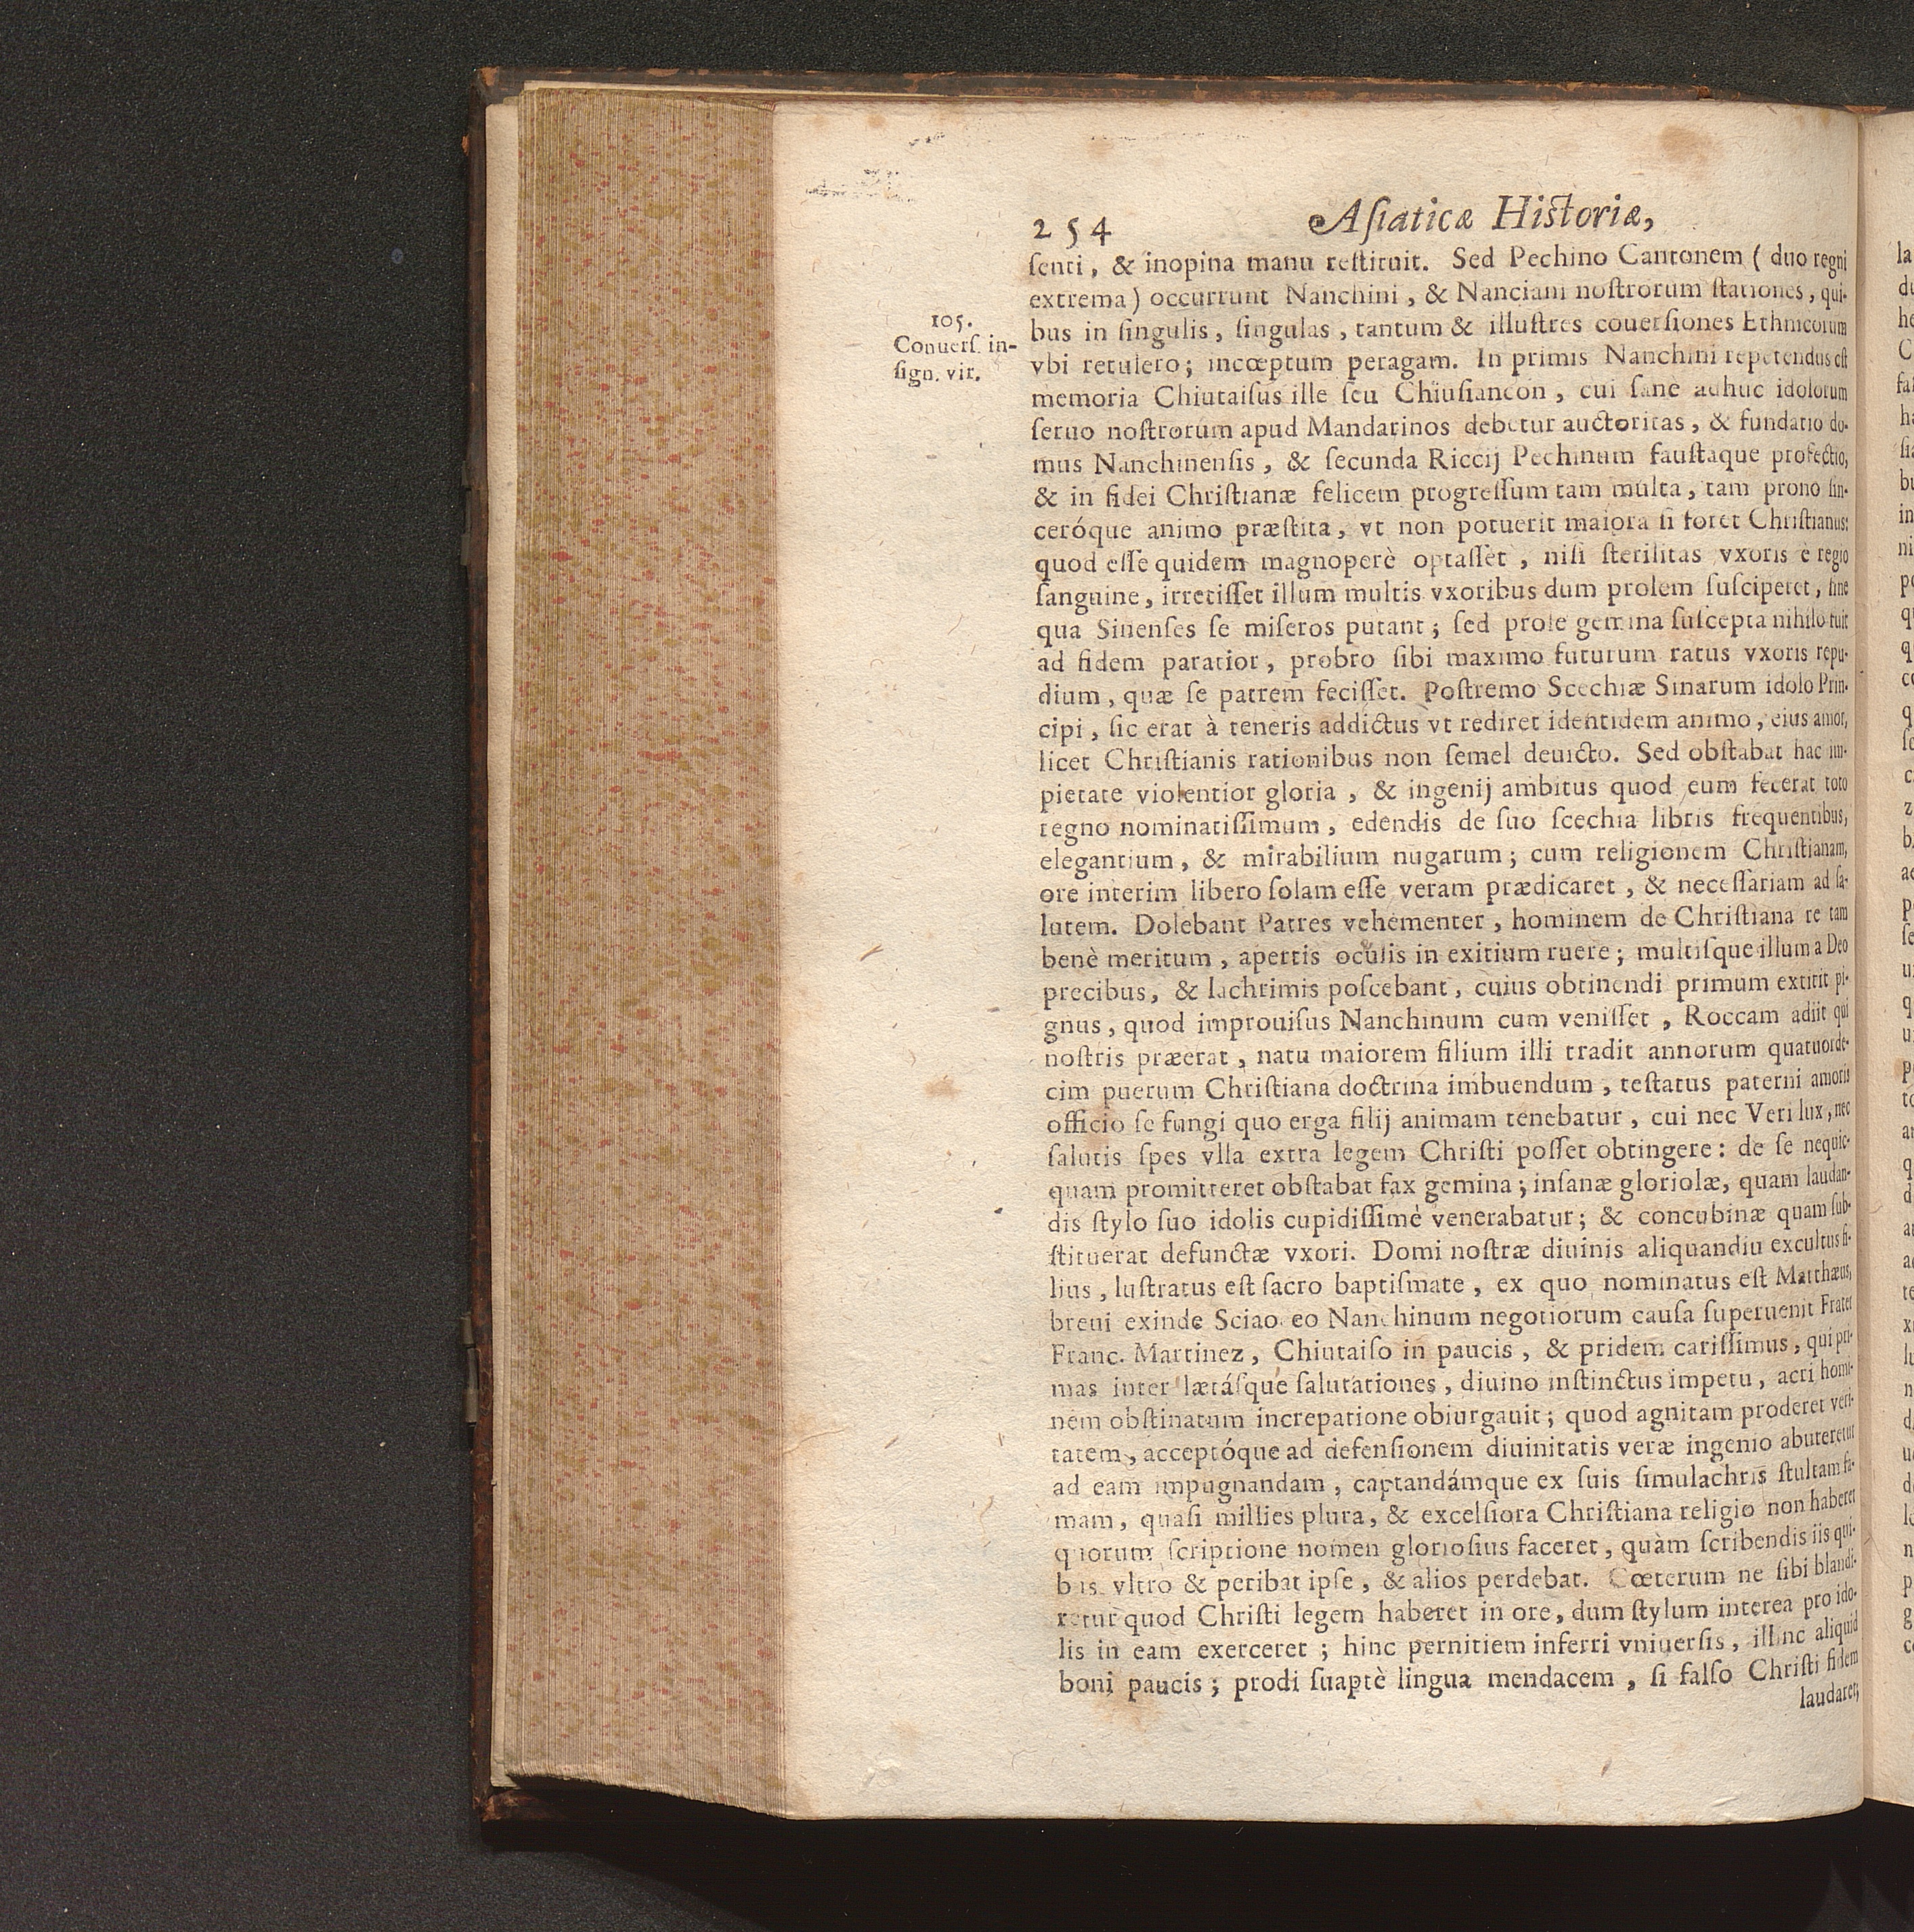 254 Asiaticæ Historiæ,
senti, & inopina manu restituit. Sed Pechino Cantonem ( duo regni
extrema) occurrunt Nanchini, & Nanciani nostrorum stationes, qui-
105.
Conuers. in-
sign. vir.
bus in singulis, singulas, tantum & illustres couersiones Ethnicorum
vbi retulero; incœptum peragam. In primis Nanchini repetendus est
memoria Chiutaisus ille seu Chiusiancon, cui sane adhuc idolorum
seruo nostrorum apud Mandarinos debetur auctoritas, & fundatio do-
mus Nanchinensis, & secunda Riccij Pechinum faustaque profectio,
& in fidei Christianæ felicem progressum tam multa, tam prono sin-
ceróque animo præstita, vt non potuerit maiora si foret Christianus:
quod esse quidem magnoperè optasset, nisi sterilitas vxoris è regio
sanguine, irretisset illum multis vxoribus dum prolem susciperet, sine
qua Sinenses se miseros putant; sed prole gemina suscepta nihilo fuit
ad fidem paratior, probro sibi maximo futurum ratus vxoris repu-
dium, quæ se patrem fecisset. Postremo Scechiæ Sinarum idolo Prin-
cipi, sic erat à teneris addictus vt rediret identidem animo, eius amor,
licet Christianis rationibus non semel deuicto. Sed obstabat hac im-
pietate violentior gloria, & ingenij ambitus quod eum fecerat toto
regno nominatissimum, edendis de suo scechia libris frequentibus,
elegantium, & mirabilium nugarum; cum religionem Christianam,
ore interim libero solam esse veram prædicaret, & necessariam ad sa-
lutem. Dolebant Patres vehementer, hominem de Christiana re tam
benè meritum, apertis oculis in exitium ruere; multisque illum a Deo
precibus, & lachrimis poscebant, cuius obtinendi primum extitit pi-
gnus, quod improuisus Nanchinum cum venisset, Roccam adiit qui
nostris præerat, natu maiorem filium illi tradit annorum quatuorde-
cim puerum Christiana doctrina imbuendum, testatus paterni amoris
officio se fungi quo erga filij animam tenebatur, cui nec Veri lux, nec
salutis spes vlla extra legem Christi posset obtingere: de se nequic-
quam promitteret obstabat fax gemina; insanæ gloriolæ, quam laudan-
dis stylo suo idolis cupidissimè venerabatur; & concubinæ quam sub-
stituerat defunctæ vxori. Domi nostræ diuinis aliquandiu excultus fi-
lius, lustratus est sacro baptismate, ex quo nominatus est Matthæus,
breui exinde Sciao eo Nanchinum negotiorum causa superuenit Frater
Franc. Martinez, Chiutaiso in paucis, & pridem carissimus, qui pri-
mas inter lætásque salutationes, diuino instinctus impetu, acri homi-
nem obstinatum increpatione obiurgauit; quod agnitam proderet veri-
tatem, acceptóque ad defensionem diuinitatis veræ ingenio abuteretur
ad eam impugnandam, captandámque ex suis simulachris stultam fa-
mam, quasi millies plura, & excelsiora Christiana religio non haberet
quorum scriptione nomen gloriosius faceret, quàm scribendis iis qui-
bus vltro & peribat ipse, & alios perdebat. Cœterum ne sibi blandi-
retur quod Christi legem haberet in ore, dum stylum interea pro ido-
lis in eam exerceret; hinc pernitiem inferri vniuersis, illinc aliquid
boni paucis; prodi suaptè lingua mendacem, si falso Christi fidem
laudaret;